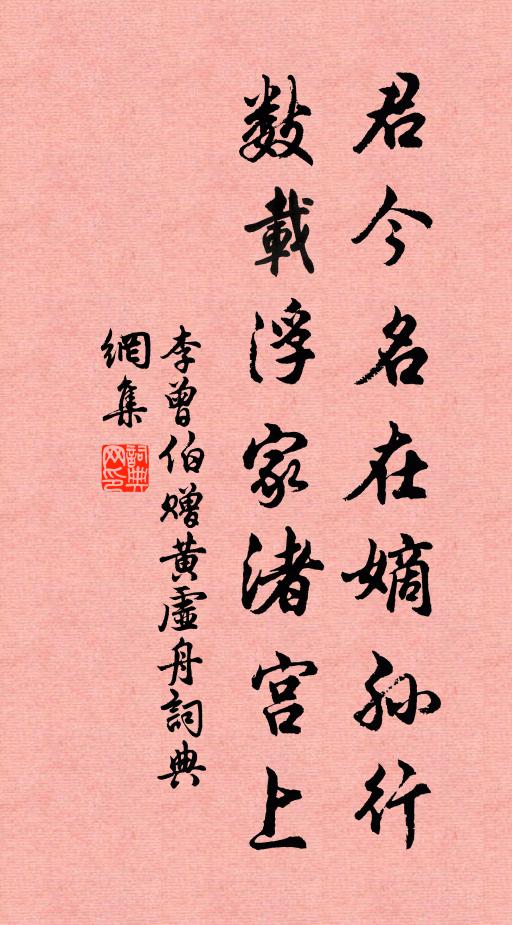 君今名在嫡孙行
数載浮家渚宫上
李曾伯赠黄虚舟詞典
網集
詞典
网印